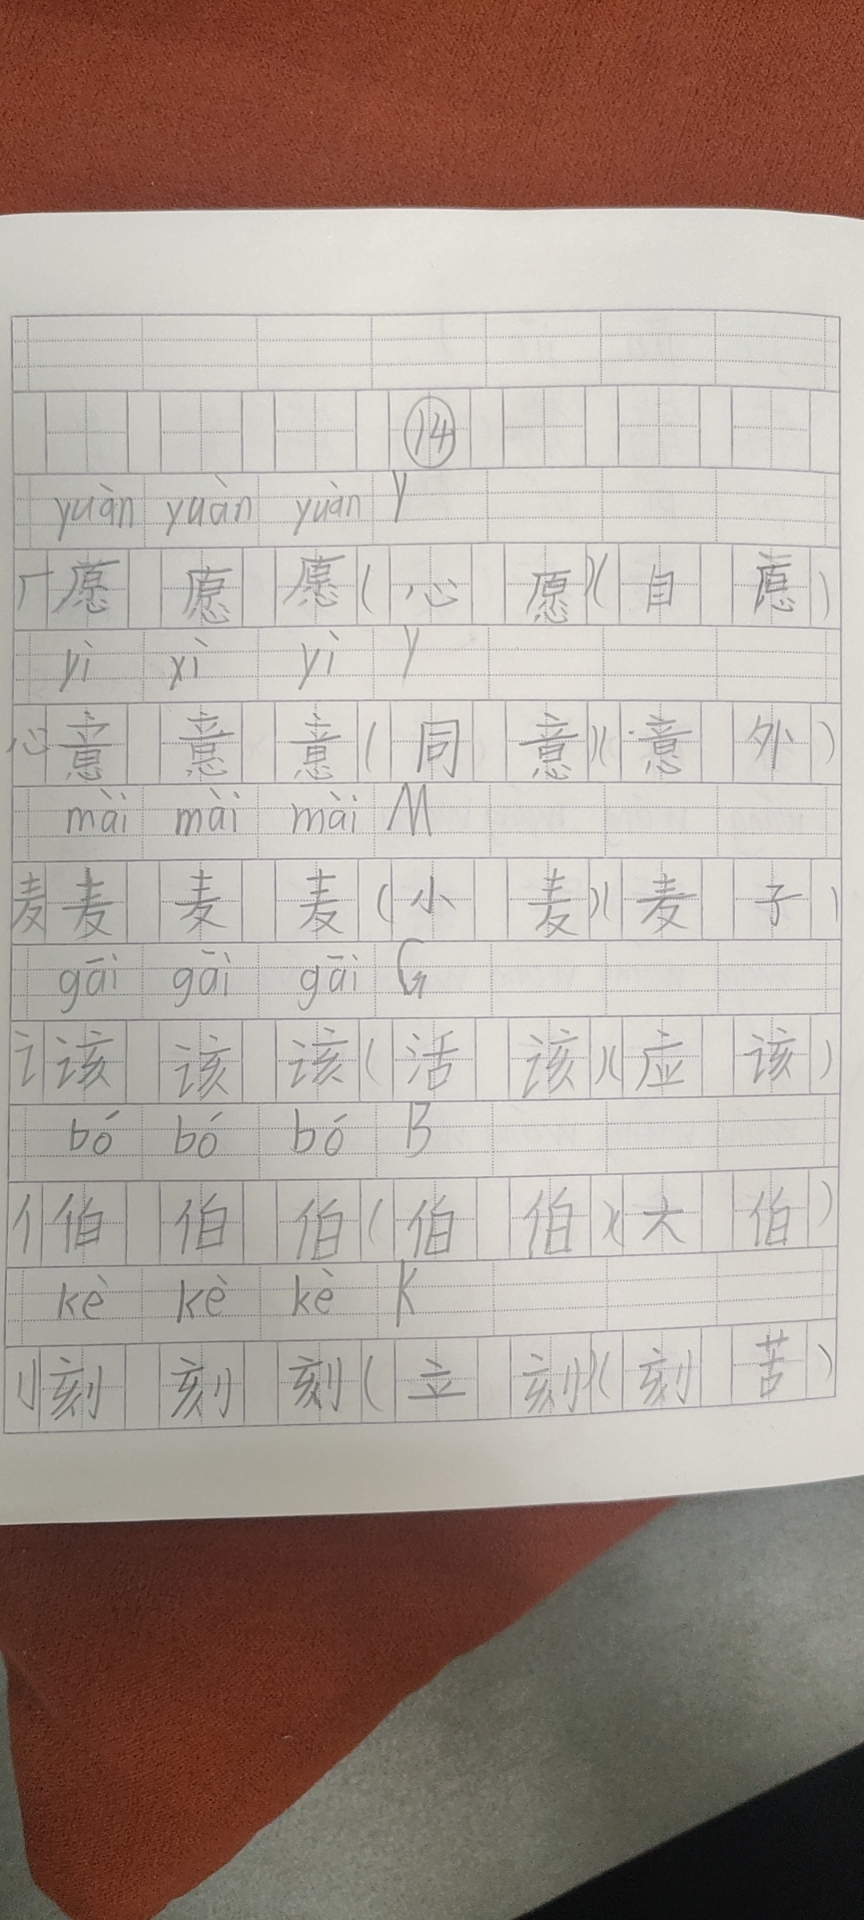 ⑭
yuàn yuàn yuàn Y
厂愿 愿 愿(心 愿)(自 愿)
yì yì yì Y
心意 意 意(同 意)(意 外)
mài mài mài M
麦麦 麦 麦(小 麦)(麦 子)
gāi gāi gāi G
讠该 该 该(活 该)(应 该)
bó bó bó B
亻伯 伯 伯(伯 伯)(大 伯)
kè kè kè K
刂刻 刻 刻(立 刻)(刻 苦)